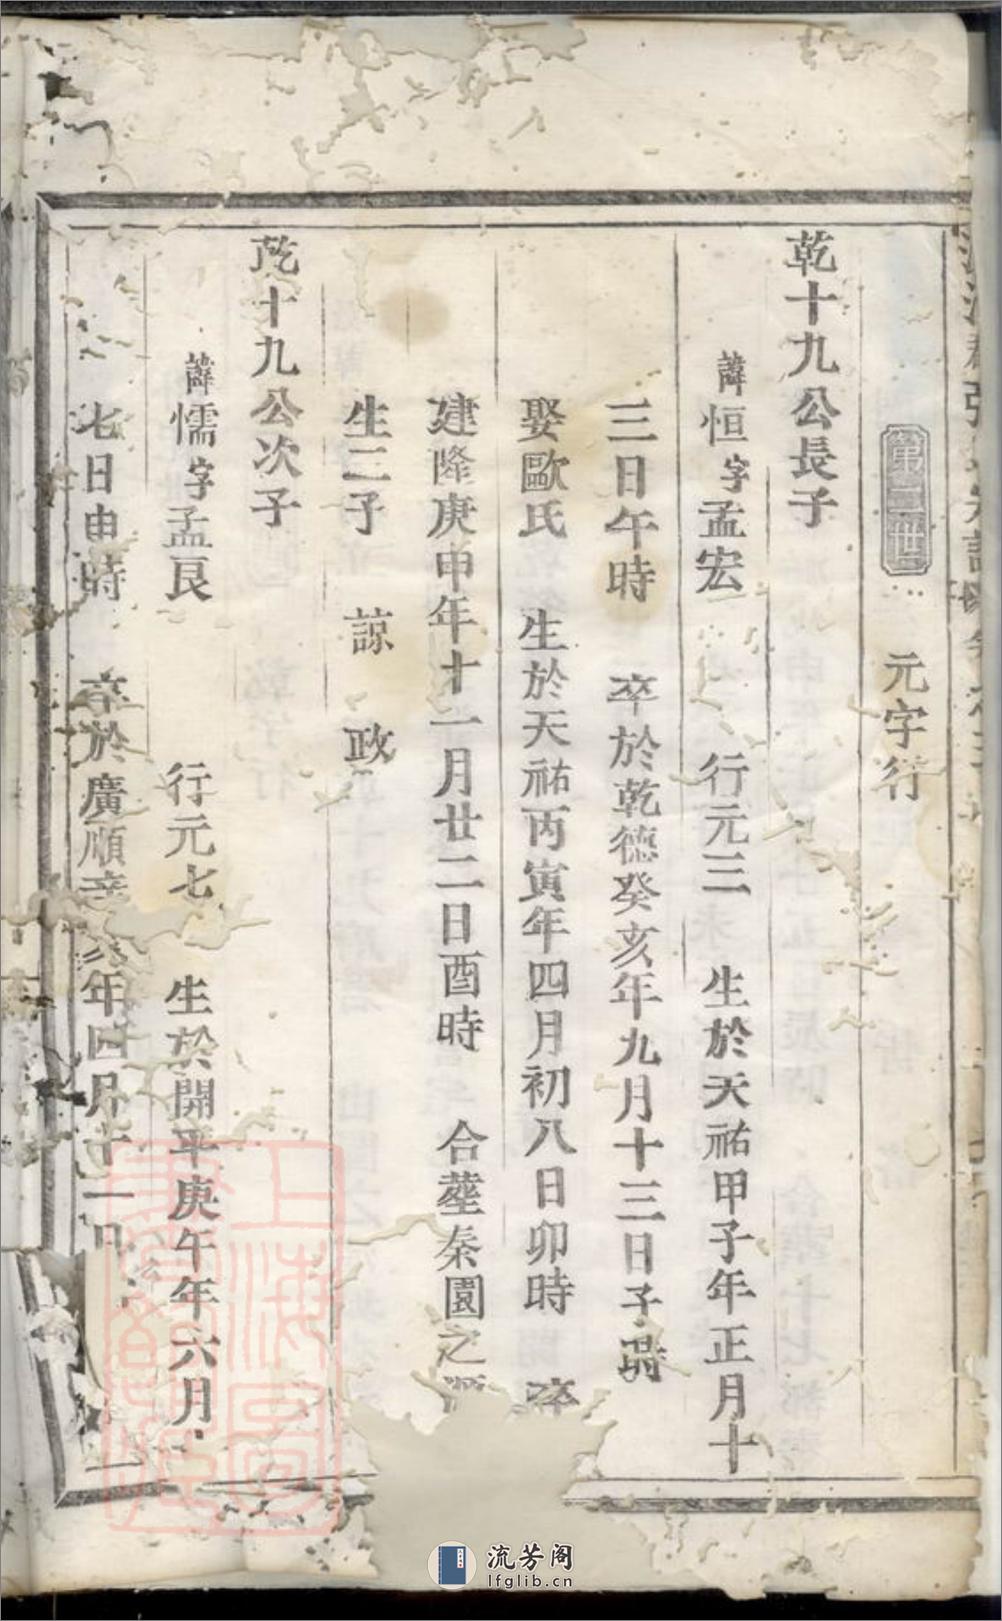 第三世 元字行
乾十九公長子
諱恒字孟宏 行元三 生於天祐甲子年正月十
三日午時 卒於乾德癸亥年九月十三日子時
娶歐氏 生於天祐丙寅年四月初八日卯時 卒
建隆庚申年十一月廿二日酉時 合葬秦園之
生二子 諒 政
乾十九公次子
諱懦字孟良 行元七 生於開平庚午年六月
七日申時 卒於廣順辛亥年四月十一日
上海圖書館藏
流芳阁
lfglib.cn